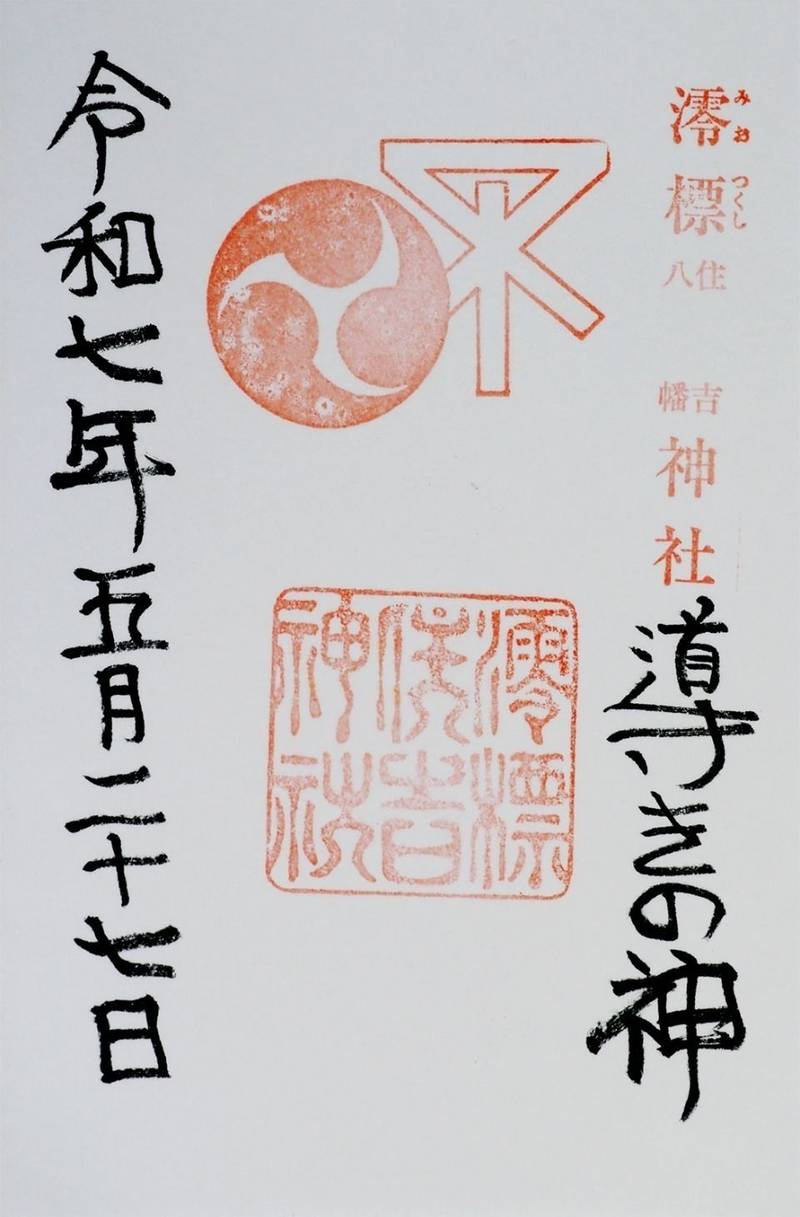 澪標住吉八幡神社
みおつくし
導きの神
澪標
住吉
神社
令和七年五月二十七日